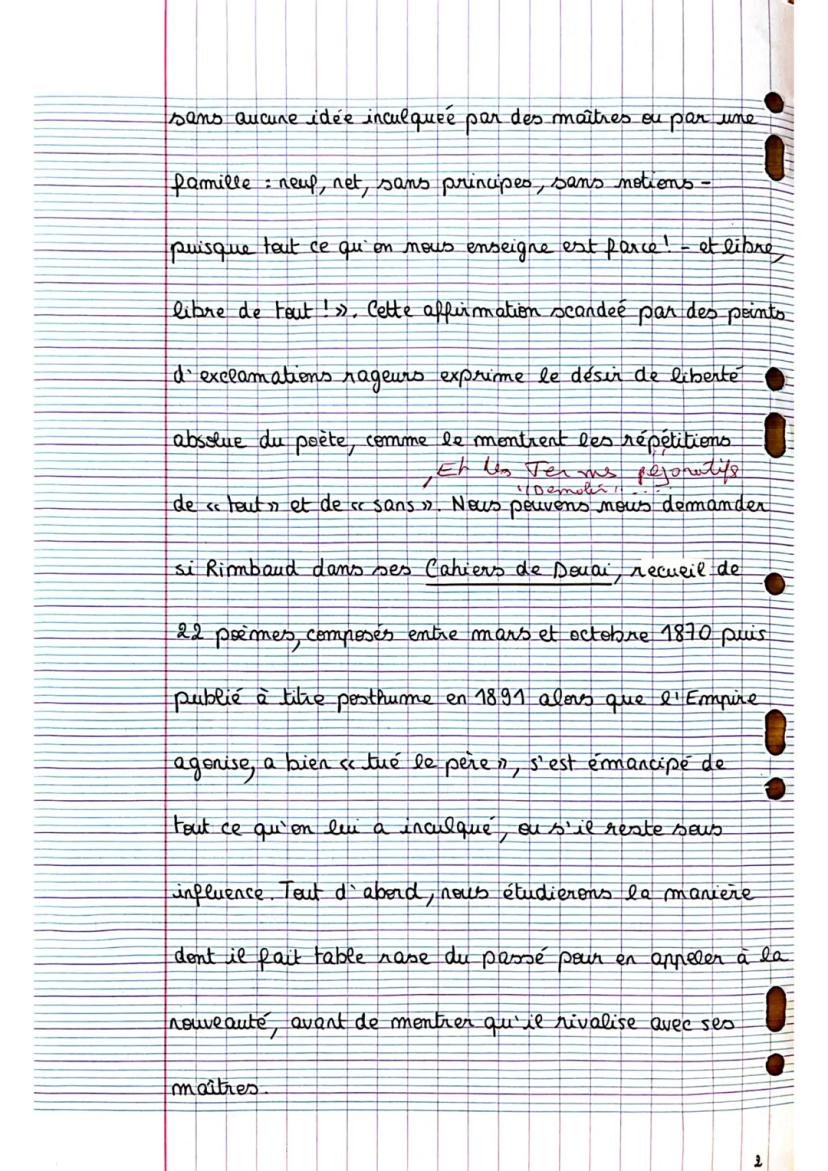 sans aucune idée inculqueé par des maîtres ou par une
famille : neuf, net, sans principes, sans notions -
puisque tout ce qu'on nous enseigne est farce! - et libre,
libre de tout ! ». Cette affirmation scandeé par des points
d'exclamations rageurs exprime le désir de liberté
absolue du poète, comme le montrent les répétitions
, Et les Termes péjoratifs
"Démolir" ....
de « tout » et de « sans ». Nous pouvons nous demander
si Rimbaud dans ses Cahiers de Douai, recueil de
22 poèmes, composés entre mars et octobre 1870 puis
publié à titre posthume en 1891 alors que l'Empire
agonise, a bien « tué le père », s'est émancipé de
tout ce qu'on lui a inculqué, ou s'il reste sous
influence. Tout d'abord, nous étudierons la manière
dont il fait table rase du passé pour en appeler à la
nouveauté, avant de montrer qu'il rivalise avec ses
maîtres.
2